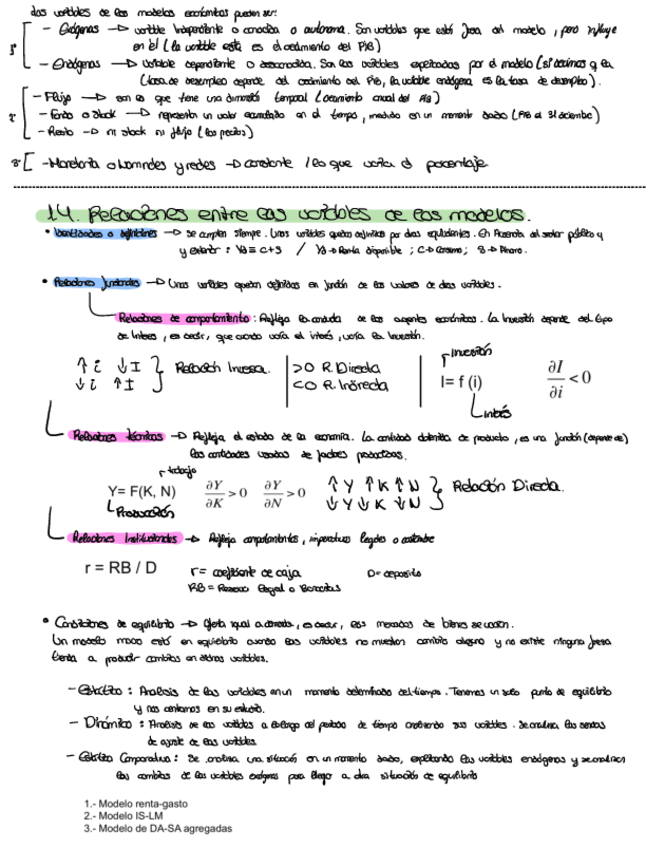 Las variables de los modelos económicos pueden ser:
1º
- Exógenas → variable independiente o conocida o autónoma. Son variables que está fuera del modelo, pero influye
en él (la variable esta es el crecimiento del PIB)
- Endógenas → variable dependiente o desconocida. Son las variables explicadas por el modelo (si decimos q la
tasa de desempleo depende del crecimiento del PIB, la variable endógena es la tasa de desempleo).
2º
- Flujo → son es que tiene una dimensión temporal (crecimiento anual del PIB)
- Fondo o stock → representa un valor acumulado en el tiempo, medido en un momento dado (PIB al 31 diciembre)
- Resto → ni stock ni flujo (los precios)
3º
- Monetaria o nominales y reales → constante / lo que varía el porcentaje
1.4. Relaciones entre las variables de los modelos.
• Identidades o definiciones → se cumplen siempre. Unas variables quedan definidas por dos equivalentes. En Ausencia del sector público y
y exterior: Yd ≡ C+S / Yd → Renta disponible ; C → Consumo ; S → Ahorro.
• Relaciones funcionales → Unas variables quedan definidas en función de los valores de otras variables.
Relaciones de comportamiento: Refleja la conducta de los agentes económicos. La Inversión depende del tipo
de Interés, es decir, que cuando varía el interés, varía la Inversión.
↑ i ↓ I } Relación Inversa.
↓ i ↑ I
>0 R. Directa
<0 R. Indirecta
Inversión
I= f (i)
Interés
∂I/∂i < 0
Relaciones técnicas → Refleja el estado de la economía. La cantidad obtenida de producto, es una función (depende de)
las cantidades usadas de factores productivos.
trabajo
Y= F(K, N) ∂Y/∂K > 0 ∂Y/∂N > 0 ↑Y ↑K ↑N } Relación Directa.
Producción ↓Y ↓K ↓N
Relaciones Institucionales → Refleja comportamientos, imperativos legales o costumbre
r = RB / D r= coeficiente de caja D= deposito
RB = Reservas legal o Bancarias
• Condiciones de equilibrio → Oferta igual a demanda, es decir, los mercados de bienes se vacían.
Un modelo macro está en equilibrio cuando las variables no muestran cambio alguno y no existe ninguna fuerza
tienda a producir cambios en dichas variables.
- Estático: Analisis de las variables en un momento determinado del tiempo. Tenemos un solo punto de equilibrio
y nos centramos en su estudio.
- Dinámico: Analisis de las variables a lo largo del periodo de tiempo analizando sus variables. Se analiza las sendas
de ajuste de las variables
- Estático Comparativa: Se analiza una situación en un momento dado, explicando las variables endógenas y se analizan
los cambios de las variables exógenas para llegar a otra situación de equilibrio
1.- Modelo renta-gasto
2.- Modelo IS-LM
3.- Modelo de DA-SA agregadas